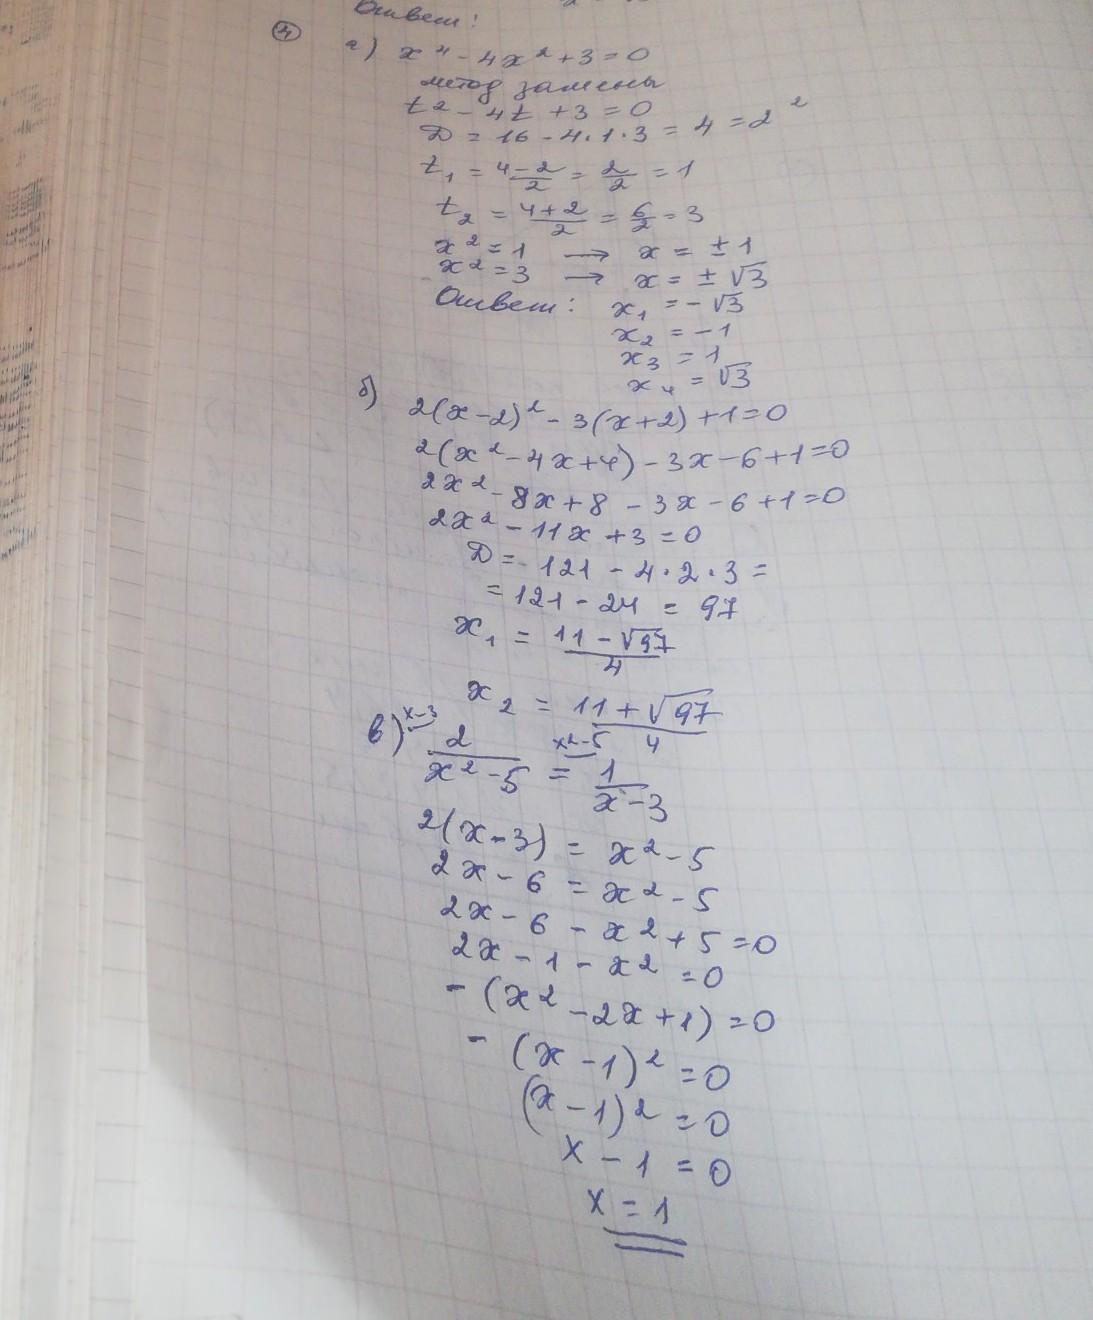 Ответ:
4
а) x⁴ - 4x² + 3 = 0
метод замены
t² - 4t + 3 = 0
D = 16 - 4·1·3 = 4 = 2²
t₁ = (4-2)/2 = 2/2 = 1
t₂ = (4+2)/2 = 6/2 = 3
x² = 1 → x = ± 1
x² = 3 → x = ± √3
Ответ: x₁ = -√3
x₂ = -1
x₃ = 1
x₄ = √3
б) 2(x-2)² - 3(x+2) + 1 = 0
2(x² - 4x + 4) - 3x - 6 + 1 = 0
2x² - 8x + 8 - 3x - 6 + 1 = 0
2x² - 11x + 3 = 0
D = 121 - 4·2·3 =
= 121 - 24 = 97
x₁ = (11 - √97)/4
x₂ = (11 + √97)/4
в) x-3 2/(x²-5) = x²-5 1/(x-3)
2(x-3) = x² - 5
2x - 6 = x² - 5
2x - 6 - x² + 5 = 0
2x - 1 - x² = 0
- (x² - 2x + 1) = 0
- (x - 1)² = 0
(x - 1)² = 0
x - 1 = 0
x = 1